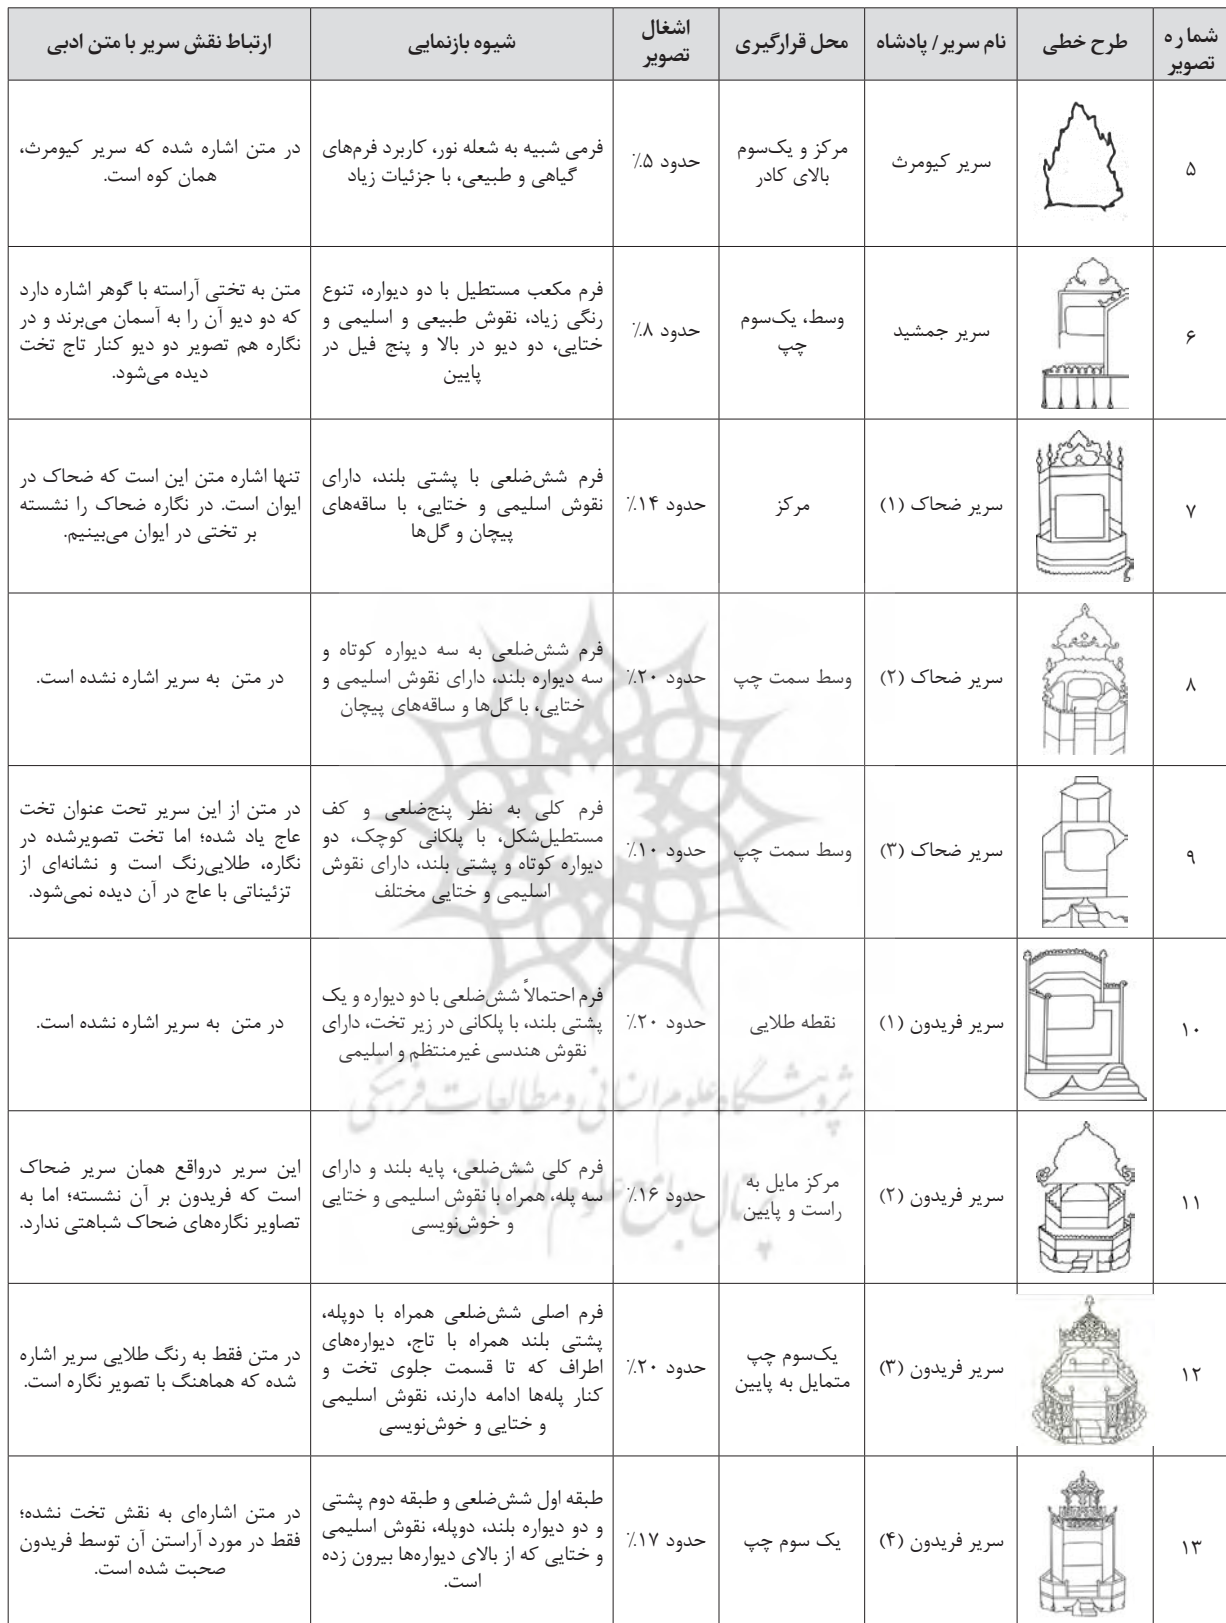 شماره تصویر
طرح خطی
نام سریر/ پادشاه
محل قرارگیری
اشغال تصویر
شیوه بازنمایی
ارتباط نقش سریر با متن ادبی
۵
سریر کیومرث
مرکز و یک‌سوم
بالای کادر
حدود ۵٪
فرمی شبیه به شعله نور، کاربرد فرم‌های
گیاهی و طبیعی، با جزئیات زیاد
در متن اشاره شده که سریر کیومرث،
همان کوه است.
۶
سریر جمشید
وسط، یک‌سوم
چپ
حدود ۸٪
فرم مکعب مستطیل با دو دیواره، تنوع
رنگی زیاد، نقوش طبیعی و اسلیمی و
ختایی، دو دیو در بالا و پنج فیل در
پایین
متن به تختی آراسته با گوهر اشاره دارد
که دو دیو آن را به آسمان می‌برند و در
نگاره هم تصویر دو دیو کنار تاج تخت
دیده می‌شود.
۷
سریر ضحاک (۱)
مرکز
حدود ۱۴٪
فرم شش‌ضلعی با پشتی بلند، دارای
نقوش اسلیمی و ختایی، با ساقه‌های
پیچان و گل‌ها
تنها اشاره متن این است که ضحاک در
ایوان است. در نگاره ضحاک را نشسته
بر تختی در ایوان می‌بینیم.
۸
سریر ضحاک (۲)
وسط سمت چپ
حدود ۲۰٪
فرم شش‌ضلعی به سه دیواره کوتاه و
سه دیواره بلند، دارای نقوش اسلیمی و
ختایی، با گل‌ها و ساقه‌های پیچان
در متن به سریر اشاره نشده است.
۹
سریر ضحاک (۳)
وسط سمت چپ
حدود ۱۰٪
فرم کلی به نظر پنج‌ضلعی و کف
مستطیل‌شکل، با پلکانی کوچک، دو
دیواره کوتاه و پشتی بلند، دارای نقوش
اسلیمی و ختایی مختلف
در متن از این سریر تحت عنوان تخت
عاج یاد شده؛ اما تخت تصویرشده در
نگاره، طلایی‌رنگ است و نشانه‌ای از
تزئیناتی با عاج در آن دیده نمی‌شود.
۱۰
سریر فریدون (۱)
نقطه طلایی
حدود ۲۰٪
فرم احتمالاً شش‌ضلعی با دو دیواره و یک
پشتی بلند، با پلکانی در زیر تخت، دارای
نقوش هندسی غیرمنتظم و اسلیمی
در متن به سریر اشاره نشده است.
پژوهشگاه علوم انسانی و مطالعات فرهنگی
۱۱
سریر فریدون (۲)
مرکز مایل به
راست و پایین
حدود ۱۶٪
فرم کلی شش‌ضلعی، پایه بلند و دارای
سه پله، همراه با نقوش اسلیمی و ختایی
و خوش‌نویسی
این سریر درواقع همان سریر ضحاک
است که فریدون بر آن نشسته؛ اما به
تصاویر نگاره‌های ضحاک شباهتی ندارد.
پرتال جامع علوم انسانی
۱۲
سریر فریدون (۳)
یک‌سوم چپ
متمایل به پایین
حدود ۲۰٪
فرم اصلی شش‌ضلعی همراه با دوپله،
پشتی بلند همراه با تاج، دیواره‌های
اطراف که تا قسمت جلوی تخت و
کنار پله‌ها ادامه دارند، نقوش اسلیمی
و ختایی و خوش‌نویسی
در متن فقط به رنگ طلایی سریر اشاره
شده که هماهنگ با تصویر نگاره است.
۱۳
سریر فریدون (۴)
یک سوم چپ
حدود ۱۷٪
طبقه اول شش‌ضلعی و طبقه دوم پشتی
و دو دیواره بلند، دوپله، نقوش اسلیمی
و ختایی که از بالای دیواره‌ها بیرون زده
است.
در متن اشاره‌ای به نقش تخت نشده؛
فقط در مورد آراستن آن توسط فریدون
صحبت شده است.